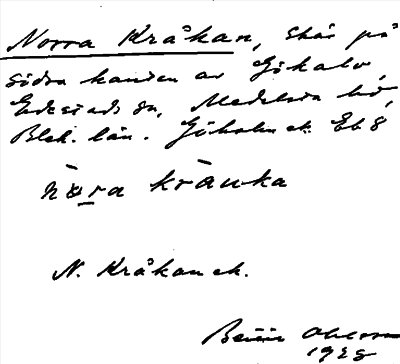 Norra Kråkan, skär på
södra kanten av Gökalv,
Edestads sn, Medelsta hd,
Blek. län. Göholm ek. Eb 8
nora kråuka
N. Kråkan ek.
Ohlsson
1928